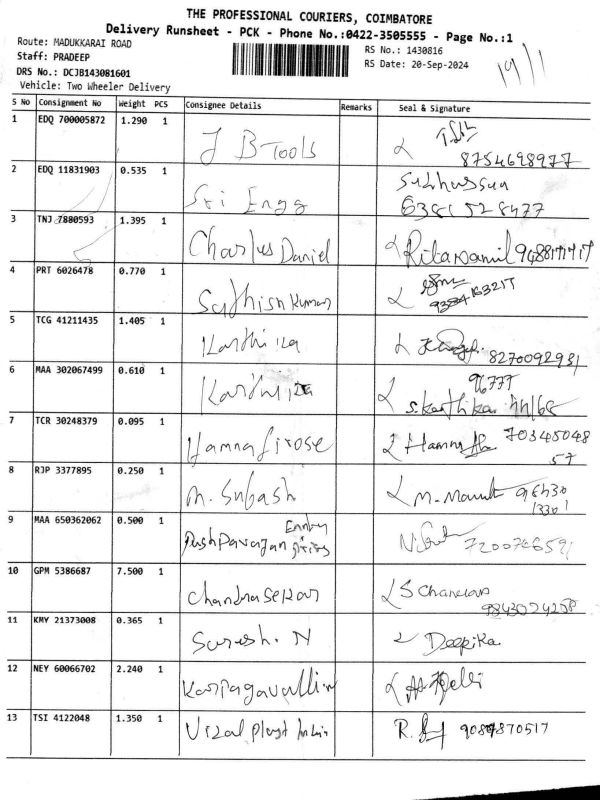 THE PROFESSIONAL COURIERS, COIMBATORE
Delivery Runsheet - PCK - Phone No.:0422-3505555 - Page No.:1
Route: MADUKKARAI ROAD
RS No.: 1430816
Staff: PRADEEP
RS Date: 20-Sep-2024
DRS No.: DCJB143081601
Vehicle: Two Wheeler Delivery
19/1
S No Consignment No Weight PCS Consignee Details Remarks Seal & Signature
1 EDQ 700005872 1.290 1 J B Tools
8754698977
2 EDQ 11831903 0.535 1 Sri Engg
6381528477
3 TNJ 7880593 1.395 1 Charles Daniel
4 PRT 6026478 0.770 1 Sathish Kumar
5 TCG 41211435 1.405 1 Karthika
8270092931
6 MAA 302067499 0.610 1 Karthika S. Karthika
96777
7 TCR 30248379 0.095 1 Hamna firose Hamna 70345048
57
8 RJP 3377895 0.250 1 M. Subash
9 MAA 650362062 0.500 1 Pushpavagan
10 GPM 5386687 7.500 1 Chandrasekar
11 KMY 21373008 0.365 1 Suresh. N Deepika
12 NEY 60066702 2.240 1 Karpagavalli
13 TSI 4122048 1.350 1 Vizal Plast R.